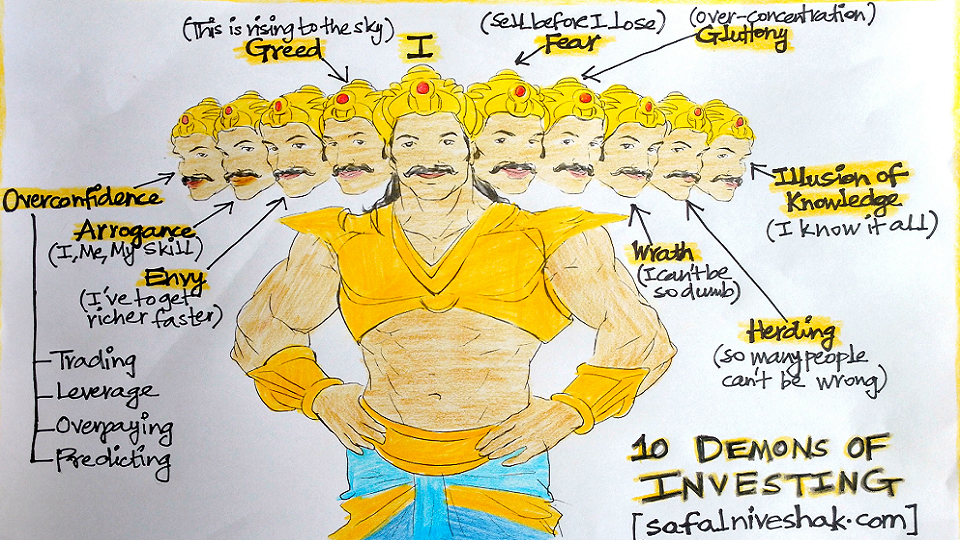 (This is rising to the sky)
Greed
I
(Sell before I lose)
Fear
(over-concentration)
Gluttony
Overconfidence
Arrogance
(I, Me, My Skill)
Envy
(I've to get
richer faster)
Trading
Leverage
Overpaying
Predicting
Illusion of
Knowledge
(I know it all)
Wrath
(I can't be
so dumb)
Herding
(so many people
can't be wrong)
10 DEMONS OF
INVESTING
[safalniveshak.com]